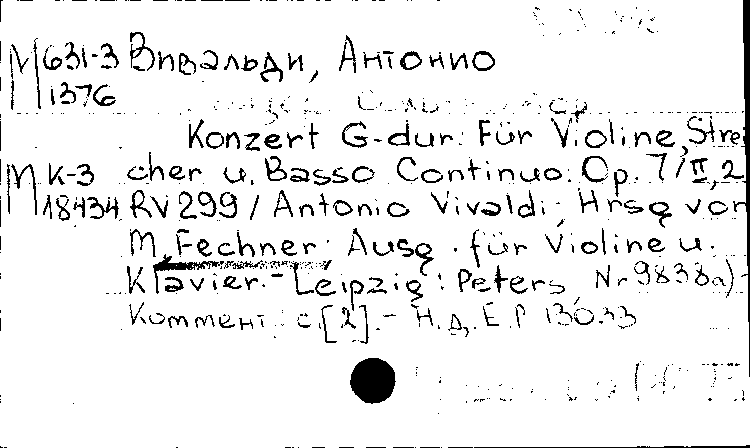 М 631-3 Вивальди, Антонио
1376
Konzert G-dur: Für Violine, Strei
М К-3 cher u. Basso Continuo. Op. 7/II,2
18434 RV 299 / Antonio Vivaldi; Hrsg von
M. Fechner. Ausg. für Violine u.
Klavier.- Leipzig: Peters, Nr 9838a)-
Коммент: с.[2].- Н.Д. E.P. 13033